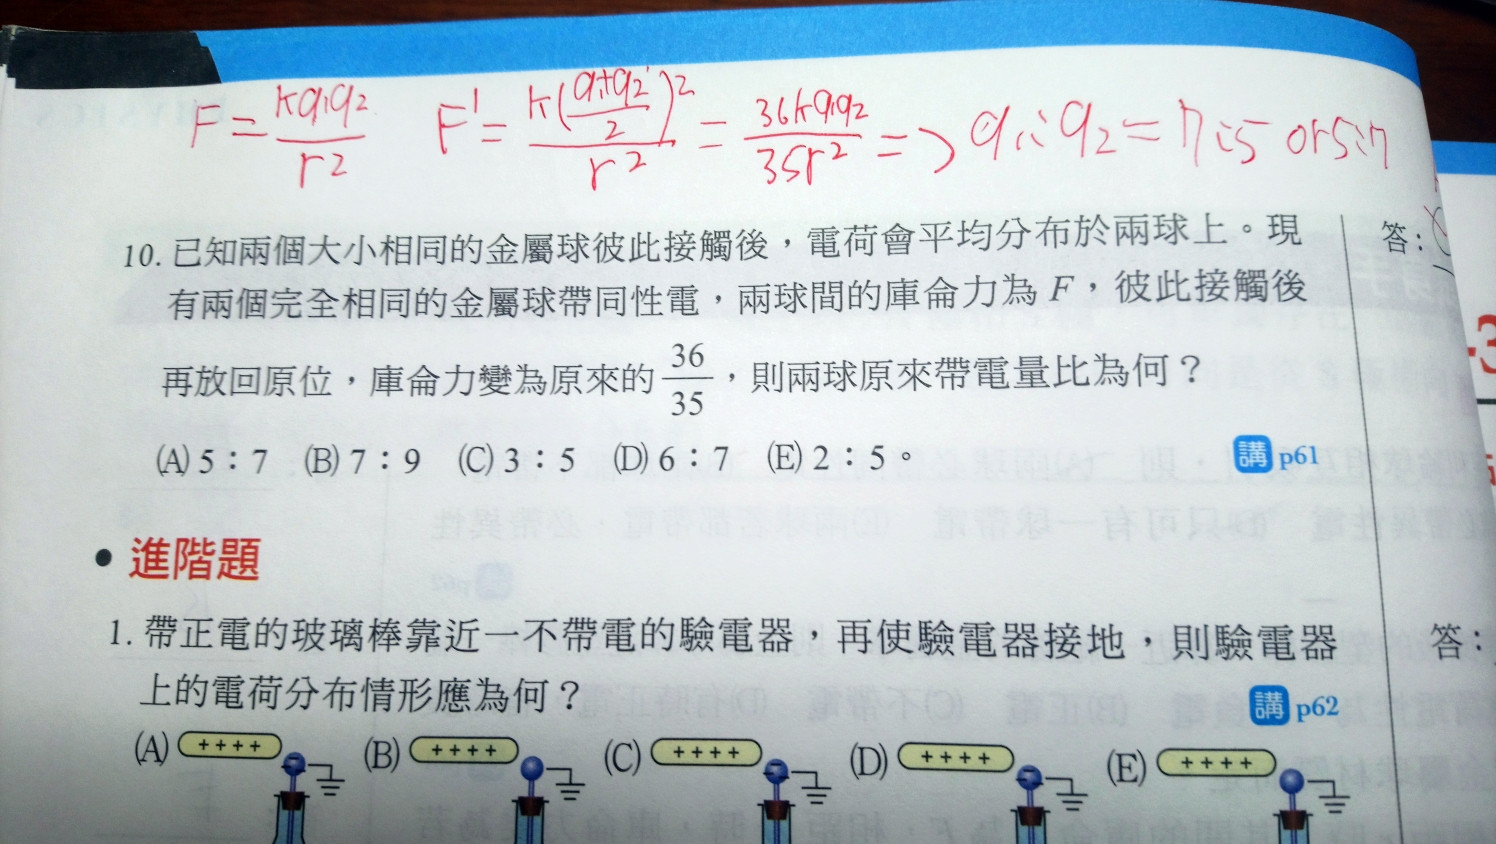 F = kq₁q₂/r² F' = k((q₁+q₂)/2)²/r² = 36kq₁q₂/35r² => q₁:q₂ = 7:5 or 5:7
10. 已知兩個大小相同的金屬球彼此接觸後，電荷會平均分布於兩球上。現
答：
有兩個完全相同的金屬球帶同性電，兩球間的庫侖力為 F，彼此接觸後
再放回原位，庫侖力變為原來的 36/35，則兩球原來帶電量比為何？
(A) 5：7 (B) 7：9 (C) 3：5 (D) 6：7 (E) 2：5。
講 p61
• 進階題
1. 帶正電的玻璃棒靠近一不帶電的驗電器，再使驗電器接地，則驗電器
答：
上的電荷分布情形應為何？
講 p62
(A) ++++ (B) ++++ (C) ++++ (D) ++++ (E) ++++